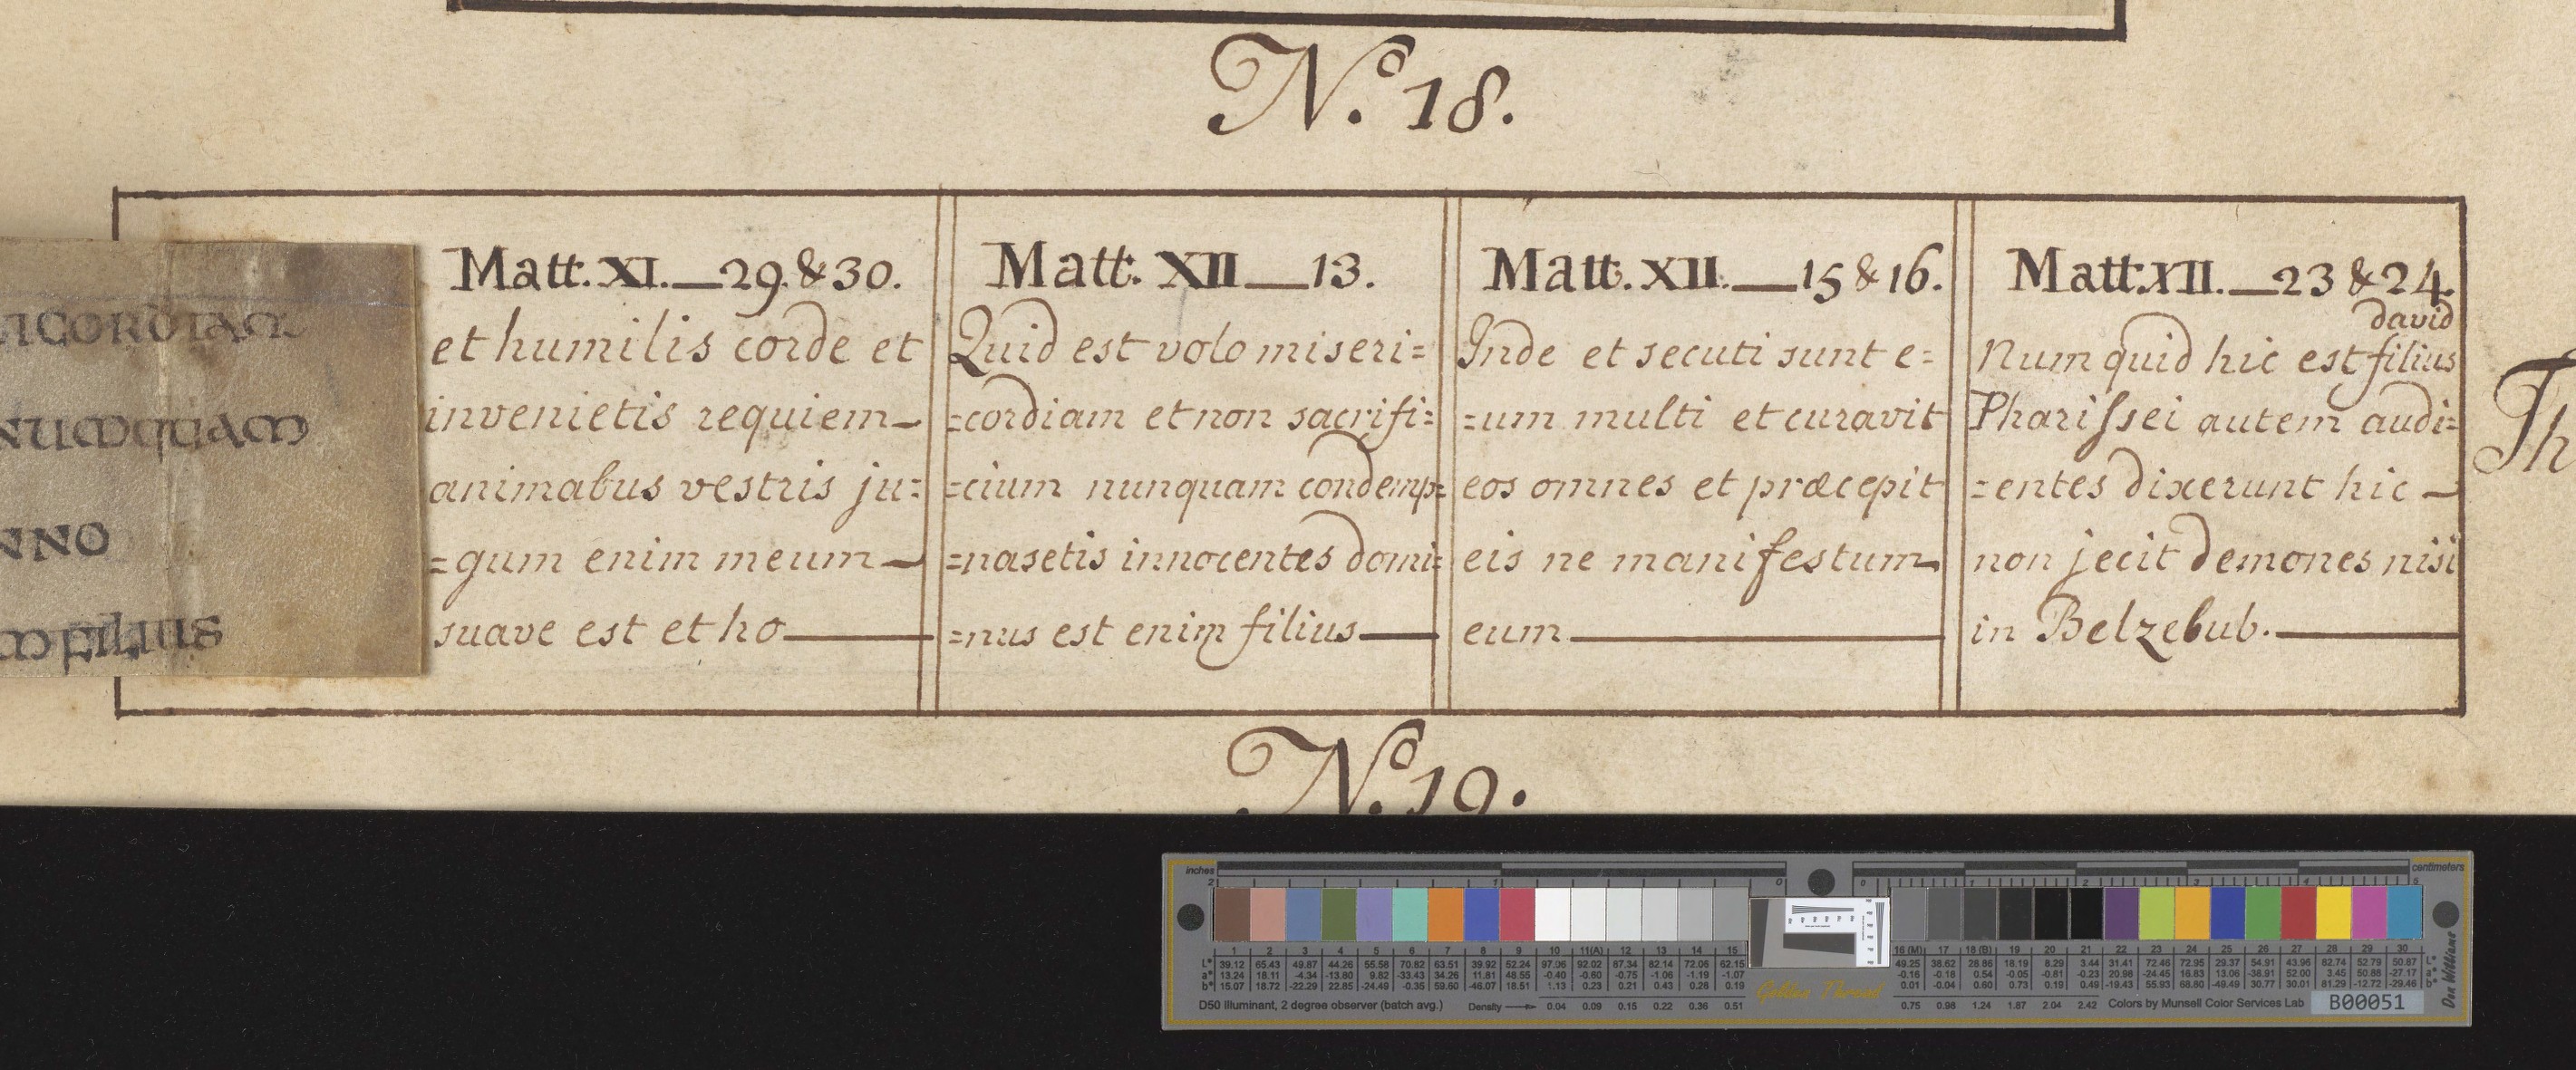 N.o 18.
ICORDIAM
NUMQUAM
NNO
M FILIUS
Matt. XI. — 29. & 30.
et humilis corde et
invenietis requiem —
animabus vestris ju=
=gum enim meum —
suave est et ho —
Matt. XII — 13.
Quid est volo miseri=
=cordiam et non sacrifi=
=cium nunquam condemp=
=nasetis innocentes domi=
=nus est enim filius —
Matt. XII. — 15 & 16.
Inde et secuti sunt e=
=um multi et curavit
eos omnes et præcepit
eis ne manifestum
eum —
Matt. XII. — 23 & 24.
david
Numquid hic est filius
Pharissei autem audi=
=entes dixerunt hic —
non jecit demones nisi
in Belzebub. —
Th
N.o 19.
inches
centimeters
2 1 0 0 1 2 3 4 5
1 2 3 4 5 6 7 8 9 10 11(A) 12 13 14 15 16 (M) 17 18 (B) 19 20 21 22 23 24 25 26 27 28 29 30
L* 39.12 65.43 49.87 44.26 55.58 70.82 63.51 39.92 52.24 97.06 92.02 87.34 82.14 72.06 62.15 49.25 38.62 28.86 18.19 8.29 3.44 31.41 72.46 72.95 29.37 54.91 43.96 82.74 52.79 50.87 L*
a* 13.24 18.11 -4.34 -13.80 9.82 -33.43 34.26 11.81 48.55 -0.40 -0.60 -0.75 -1.06 -1.19 -1.07 -0.16 -0.18 0.54 -0.05 -0.81 -0.23 20.98 -24.45 16.83 13.06 -38.91 52.00 3.45 50.88 -27.17 a*
b* 15.07 18.72 -22.29 22.85 -24.49 -0.35 59.60 -46.07 18.51 1.13 0.23 0.21 0.43 0.28 0.19 0.01 -0.04 0.60 0.73 0.19 0.49 -19.43 55.93 68.80 -49.49 30.77 30.01 81.29 -12.72 -29.46 b*
D50 Illuminant, 2 degree observer (batch avg.) Density 0.04 0.09 0.15 0.22 0.36 0.51 Golden Thread 0.75 0.98 1.24 1.67 2.04 2.42 Colors by Munsell Color Services Lab B00051
Don Williams